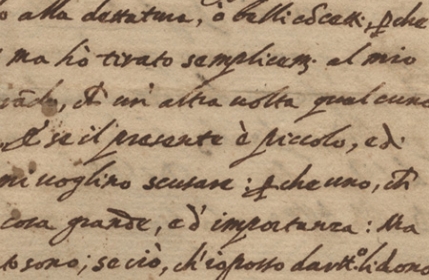 alla dettatura, ò belli cõcetti, ꝑche
ma hò tirato semplicem. al mio
ch un' altra uolta qualcuno
E se il presente è piccolo, e di
mi uoglino scusare: ꝑche uno, ch
cosa grande, e d' importanza: Ma
sono; se ciò, ch' io posso